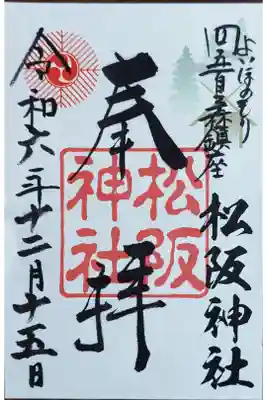 よいほのもり
四五百之森鎮座
松阪神社
奉拝
松阪神社
令和六年十二月十五日